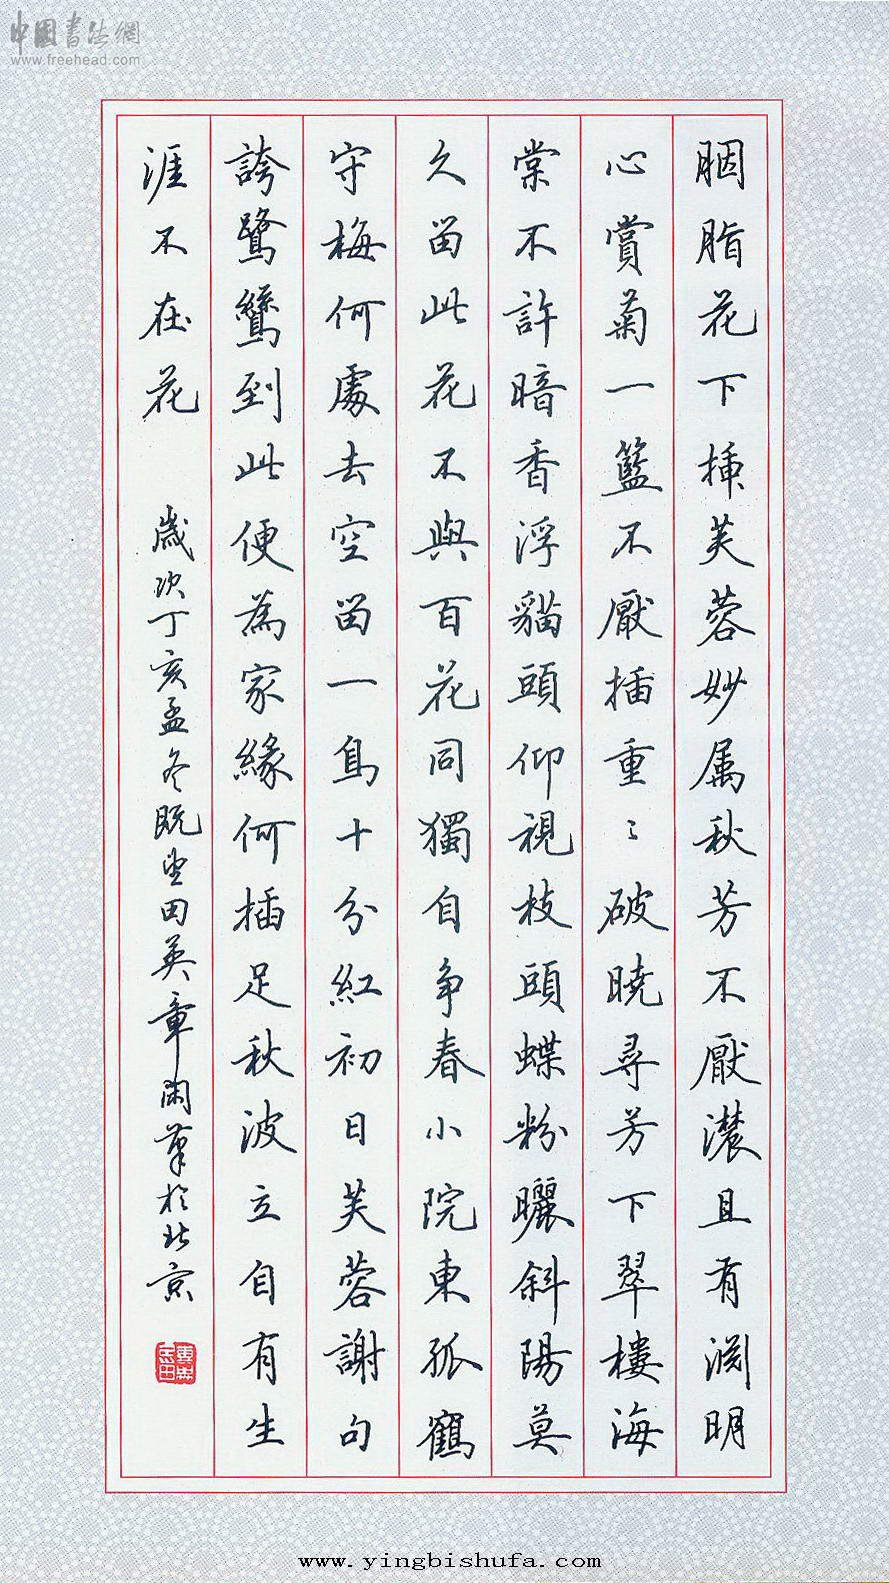 中國書法網
www.freehead.com
胭脂花下插芙蓉妙属秋芳不厭濃且有淵明
心賞菊一籃不厭插重〻破曉尋芳下翠樓海
棠不許暗香浮貓頭仰視枝頭蝶粉曬斜陽莫
久留此花不與百花同獨自争春小院東孤鶴
守梅何處去空留一鳥十分紅初日芙蓉謝句
誇鷺鷥到此便為家緣何插足秋波立自有生
涯不在花
歲次丁亥孟冬既望田英章閑筆於北京
www.yingbishufa.com